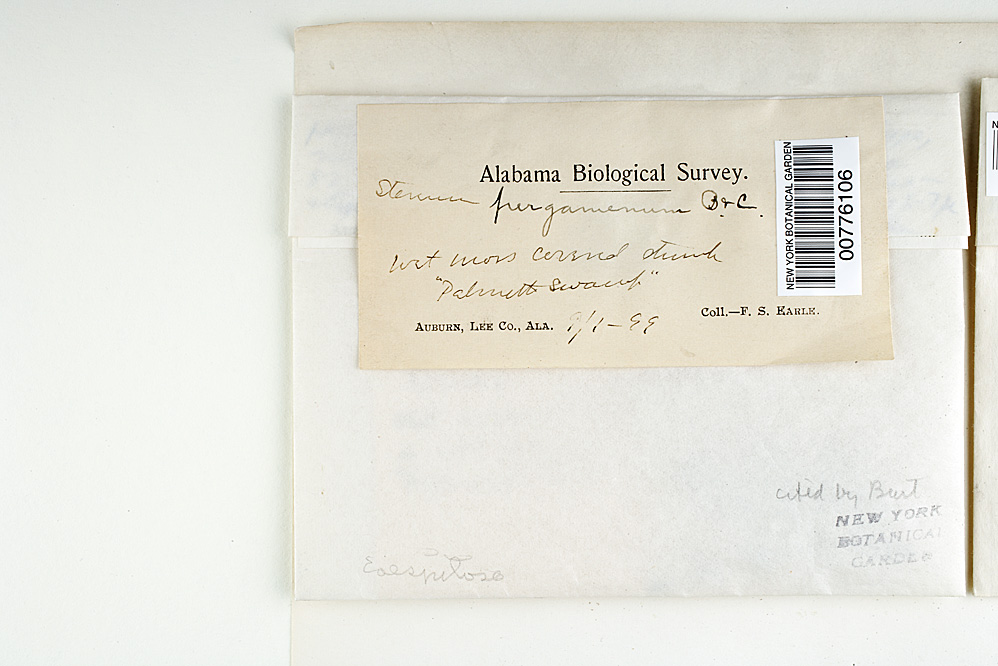 Alabama Biological Survey.
Stereum pergamenum B & C.
wet moss covered stump
"Palmetto Swamp"
AUBURN, LEE CO., ALA. 9/1-99
Coll.—F. S. EARLE.
NEW YORK BOTANICAL GARDEN
00776106
cited by Burt
NEW YORK
BOTANICAL
GARDEN
Caespitosa
N